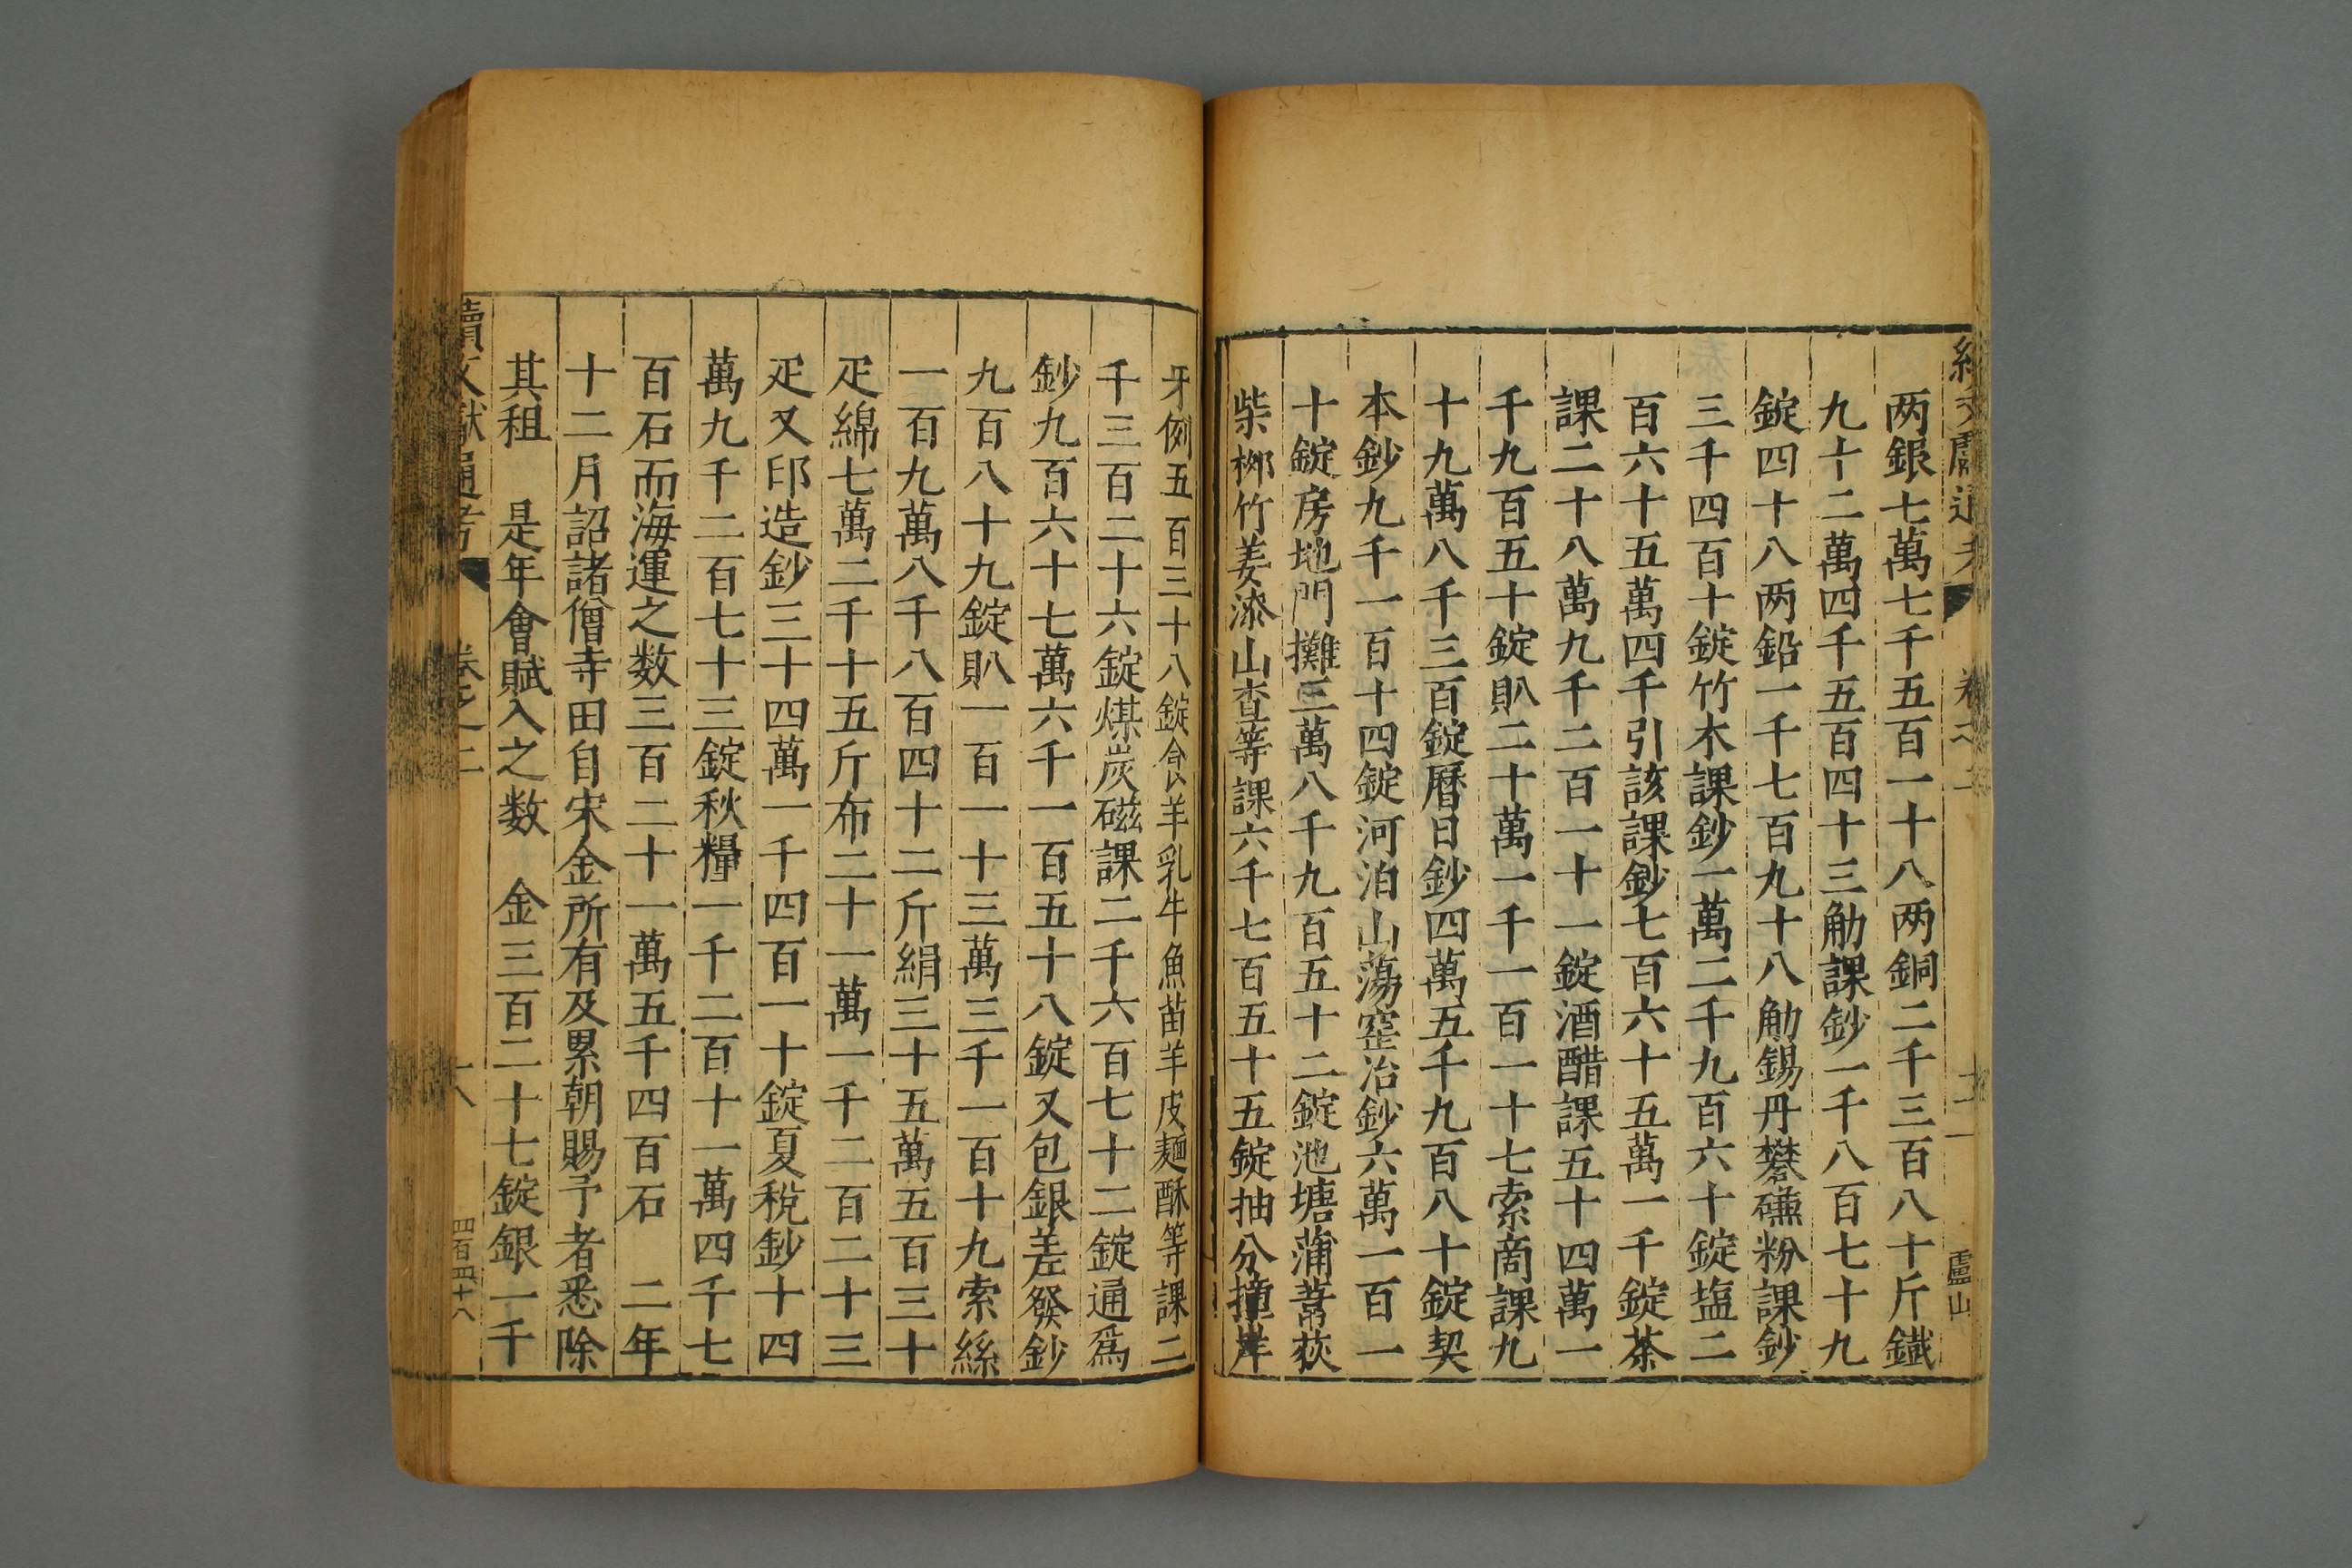 两銀七萬七千五百一十八两銅二千三百八十斤鐵
九十二萬四千五百四十三觔課鈔一千八百七十九
錠四十八两鉛一千七百九十八觔錫丹礬䃸粉課鈔
三千四百十錠竹木課鈔一萬二千九百六十錠塩二
百六十五萬四千引該課鈔七百六十五萬一千錠茶
課二十八萬九千二百一十一錠酒醋課五十四萬一
千九百五十錠𧴩二十萬一千一百一十七索商課九
十九萬八千三百錠曆日鈔四萬五千九百八十錠契
本鈔九千一百十四錠河泊山蕩窰冶鈔六萬一百一
十錠房地門攤三萬八千九百五十二錠池塘蒲葦荻
柴梛竹姜漆山査等課六千七百五十五錠抽分撞岸
牙例五百三十八錠食羊乳牛魚苗羊皮麺酥等課二
千三百二十六錠煤炭磁課二千六百七十二錠通爲
鈔九百六十七萬六千一百五十八錠又包銀差發鈔
九百八十九錠𧴩一百一十三萬三千一百十九索絲
一百九萬八千八百四十二斤絹三十五萬五百三十
疋綿七萬二千十五斤布二十一萬一千二百二十三
疋又印造鈔三十四萬一千四百一十錠夏稅鈔十四
萬九千二百七十三錠秋糧一千二百十一萬四千七
百石而海運之数三百二十一萬五千四百石　二年
十二月詔諸僧寺田自宋金所有及累朝賜予者悉除
其租　是年會賦入之数　金三百二十七錠銀一千
續文獻通考　卷之二　十八　四百四十八
盧山